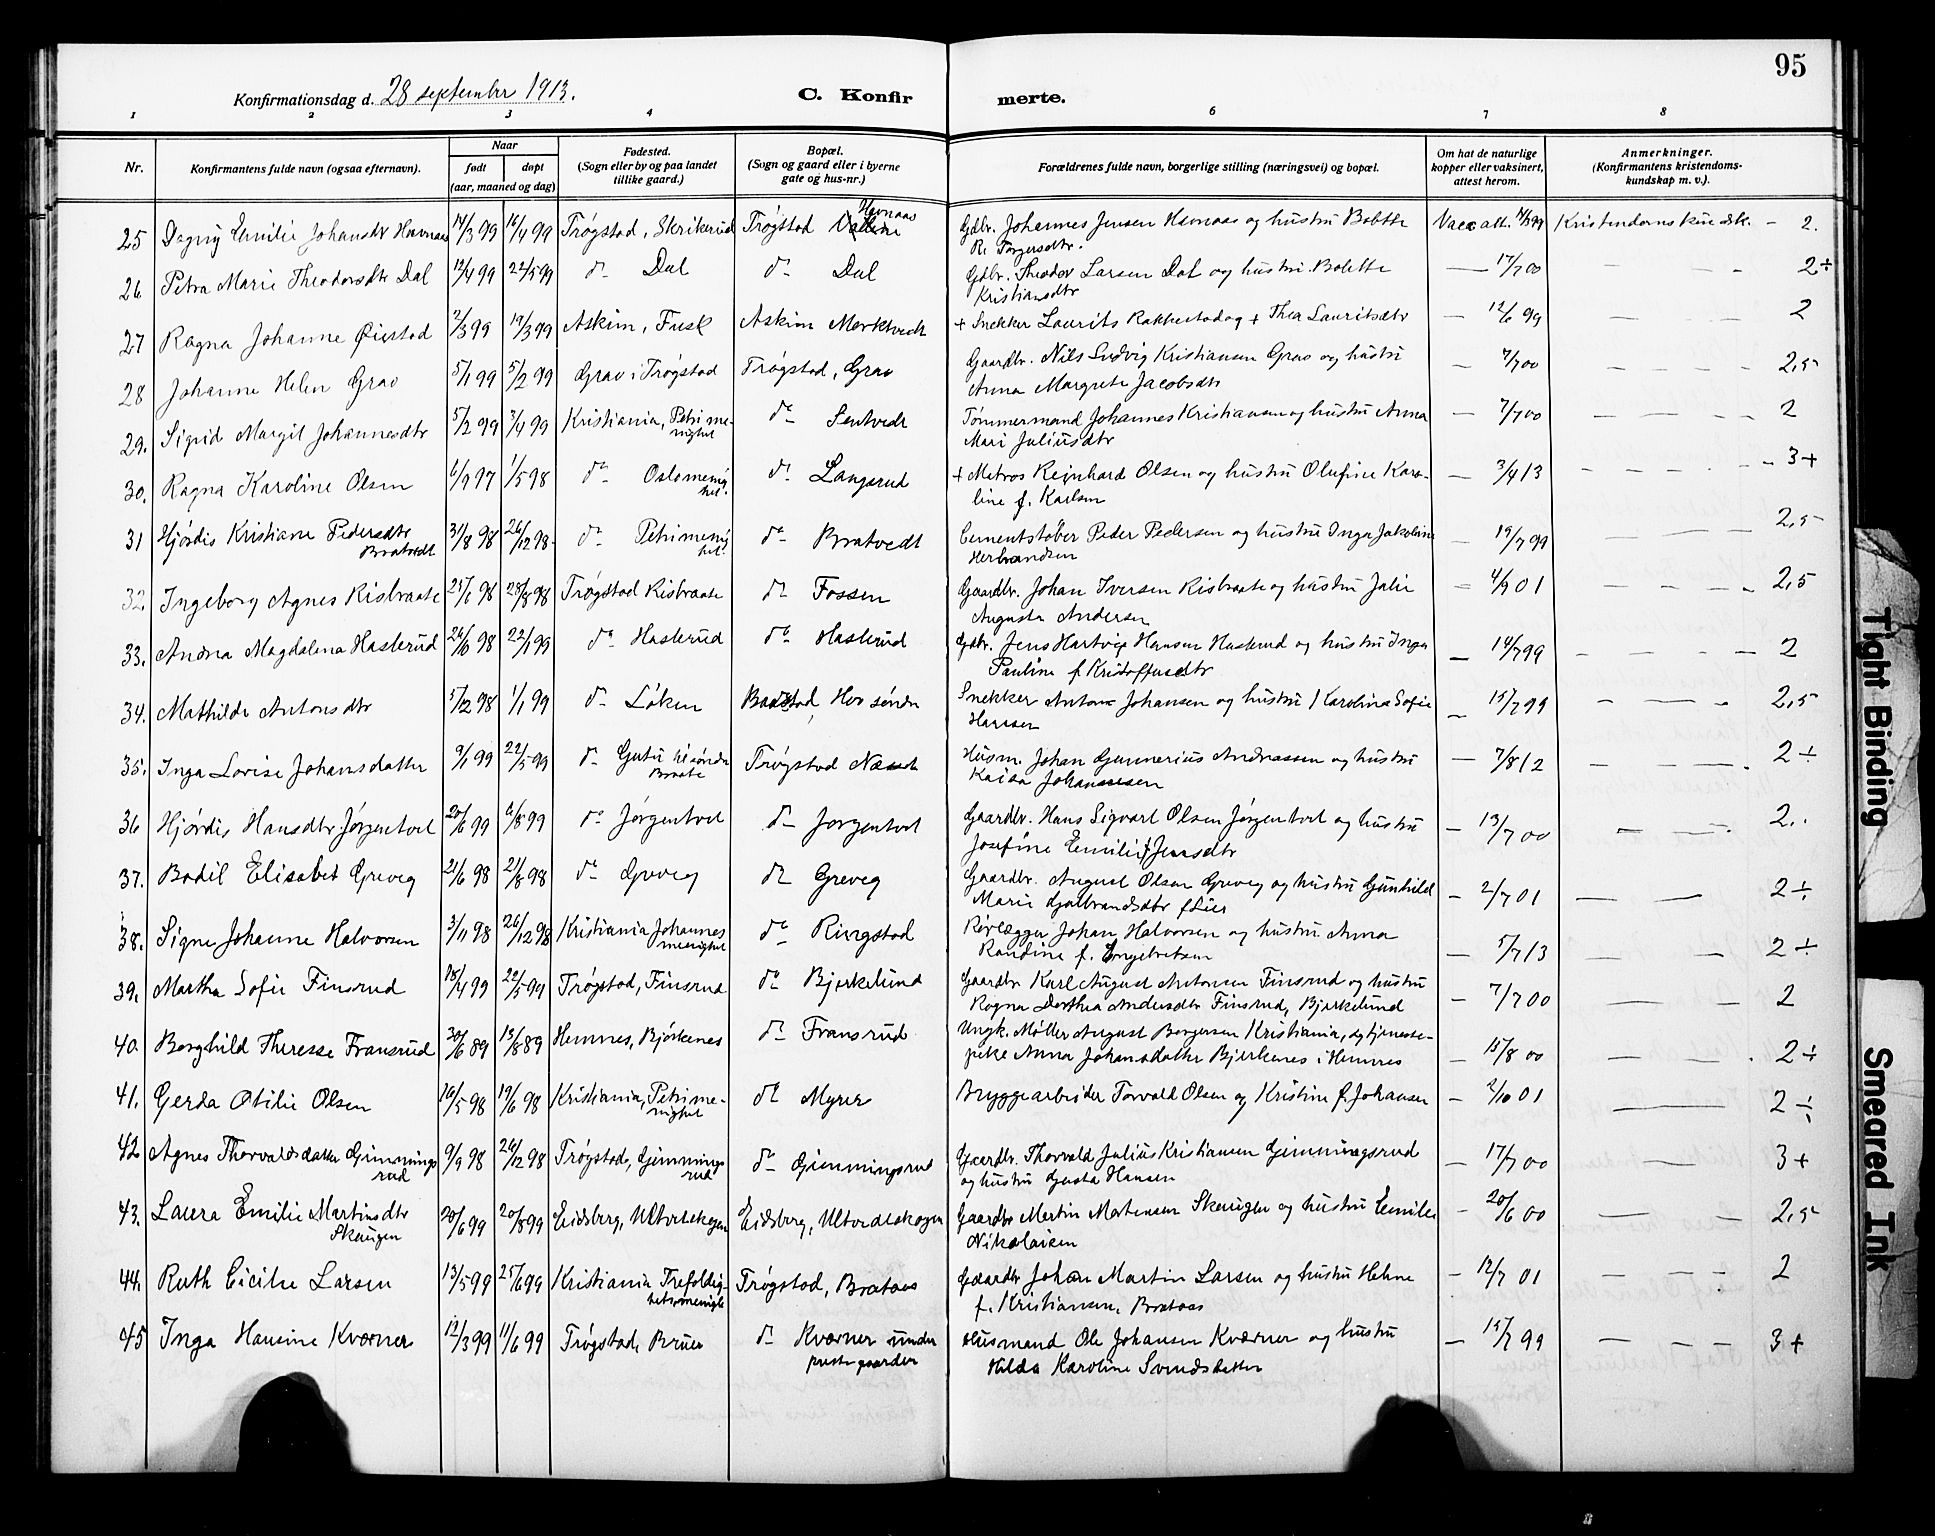 95
Konfirmationsdag d. 28 september 1913.
C. Konfir merte.
1 2 3 4 6 7 8
Nr. Konfirmantens fulde navn (ogsaa efternavn). Naar født døpt (aar, maaned og dag) Fødested. (Sogn eller by og paa landet tillike gaard.) Bopæl. (Sogn og gaard eller i byerne gate og hus-nr.) Forældrenes fulde navn, borgerlige stilling (næringsvei) og bopæl. Om hat de naturlige kopper eller vaksinert, attest herom. Anmerkninger. (Konfirmantens kristendoms-kundskap m. v.).
25 Dagny Emilie Johansdtr Havnaas 14/3 99 16/4 99 Trøgstad, Skrikerud Trøgstad Havnaas Gdbr. Johannes Jensen Havnaas og hustru Bolette
R. Torgersdtr. Vacc att. Kristendomskundsk. - 2.
26 Petra Marie Theodorsdtr Dal 12/4 99 22/5 99 do Dal do Dal Gdbr. Theodor Larsen Dal og hustru Bolette
Kristiansdtr — 17/7 00 — 2÷
27 Ragna Johanne Øiestad 2/3 99 19/3 99 Askim, Fusk Askim Merktvedt + Snekker Laurits Rakkestad og + Thea Lauritsdtr — 12/6 99 — 2
28 Johanne Helen Grav 5/1 99 5/2 99 Grav i Trøgstad Trøgstad, Grav Gaardbr. Nils Ludvig Kristiansen Grav og hustru
Anna Margrete Jacobsdtr — 7/7 00 — 2,5
29. Sigrid Margit Johannesdtr 5/2 99 3/4 99 Kristiania, Petri me-
nighet do Sentvedt Tømmermand Johannes Kristiansen og hustru Anna
Mari Juliusdtr — 7/7 00 — 2
30. Ragna Karoline Olsen 6/9 97 1/5 98 do Oslomenig
het. do Langsrud + Matros Reinhard Olsen og hustru Olufine Karo-
line f. Karlsen — 3/4 13 — 3+
31 Hjørdis Kristiane Pedersdtr
Bratvedt 31/8 98 26/12 98 do Petrimenig
het. do Bratvedt Cementstøber Peder Pedersen og hustru Inga Jakobine
Herbrandsen — 19/7 99 — 2,5
32. Ingeborg Agnes Risbraate 25/6 98 28/8 98 Trøgstad Risbraate do Fossen Gaardbr. Johan Iversen Risbraate og hustru Julie
Augusta Andersen — 4/9 01 — 2,5
33. Andrea Magdalena Hasterud 26/6 98 22/1 99 do Hasterud do Hasterud Gdbr. Jens Hartvig Hansen Hasterud og hustru Inga
Pauline f. Kristoffersdtr — 14/7 99 — 2
34. Mathilde Antonsdtr 5/12 98 1/1 99 do Løken Baastad, Hov søndre Snekker Anton Johansen og hustru Karolina Sofie
Hansen — 15/7 99 — 2,5
35. Inga Lovise Johansdatter 9/1 99 22/5 99 do
Braate Trøgstad Husm. Johan Gunnerius Andreassen og hustru
Kaisa Johannessen — 7/8 12 — 2÷
36 Hjørdis Hansdtr Jørgentvet 20/6 99 6/8 99 do Jørgentvet do Jørgentvet Gaardbr. Hans Sigvart Olsen Jørgentvet og hustru
Josefine Emilie Jensdtr — 13/7 00 — 2.
37. Bodil Elisabet Greveg 21/6 98 21/8 98 do Greveg do Greveg Gaardbr. August Olsen Greveg og hustru Gunhild
Marie Gulbrandsdtr f Lier — 2/7 01 — 2÷
38. Signe Johanne Halvorsen 3/11 98 26/12 98 Kristiania Johannes
menighet do Ringstad Rørlægger Johan Halvorsen og hustru Anna
Randine f. Engebretsen — 5/7 13 — 2÷
39. Martha Sofie Finsrud 18/4 99 22/5 99 Trøgstad, Finsrud do Bjerkelund Gaardbr Karl August Antonsen Finsrud og hustru
Ragna Dorthea Andersdtr Finsrud, Bjerkelund — 7/7 00 — 2
40. Borghild Theresse Fransrud 30/6 89 13/8 89 Hemnes, Bjørkenes do Fransrud Ungk. Møller August Borgersen Kristiania, og tjeneste-
pike Anna Johansdatter Bjerkenes i Hemnes — 15/8 00 — 2÷
41. Gerda Otilie Olsen 16/5 98 19/6 98 Kristiania, Petrime-
nighet do Myrer Bryggearbeider Torvald Olsen og Kristine f. Johansen — 2/10 01 — 2÷
42 Agnes Thorvaldsdatter Gimmings
rud 9/9 98 26/12 98 Trøgstad, Gimmings
rud do Gimmingsrud Gaardbr. Thorvald Julius Kristiansen Gimmingsrud
og hustru Gusta Hansen — 17/7 00 — 3+
43. Laura Emilie Martinsdtr
Skaugen 20/6 99 20/8 99 Eidsberg, Ultvedtskogen Eidsberg, Ultvedtskogen Gaardbr Martin Mortensen Skaugen og hustru Emilie
Nikolaisen — 20/6 00 — 2,5
44. Ruth Cicilie Larsen 13/5 99 25/6 99 Kristiania Trefoldig-
hetsmenigh Trøgstad, Brataas Gaardbr Johan Martin Larsen og hustru Helene
f. Kristiansen, Brataas — 12/7 01 — 2
45 Inga Hansine Kværner 12/3 99 11/6 99 Trøgstad, Bruer do Kværner under
prestegaarden Husmand Ole Johansen Kværner og hustru
Hilda Karoline Svendsdatter — 15/7 99 — 3+
Tight Binding
Smeared Ink